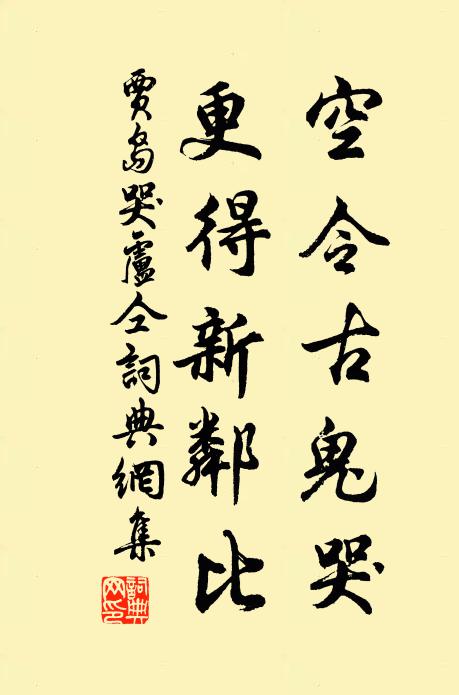 空令古鬼哭
更得新鄰比
賈島哭盧仝詞典網集
詞典网印